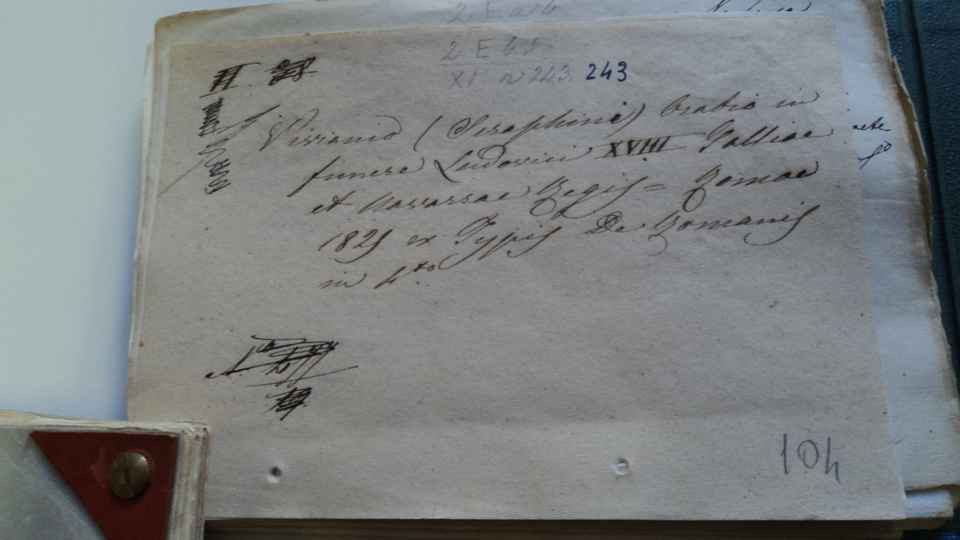 2 E 68
XI n 243. 243
II 28
Viviano (Seraphini) Oratio in
funere Ludovici XVIII Galliae
et Navarrae Regis = Romae
1825 ex Typis De Romanis
in 4.to
104